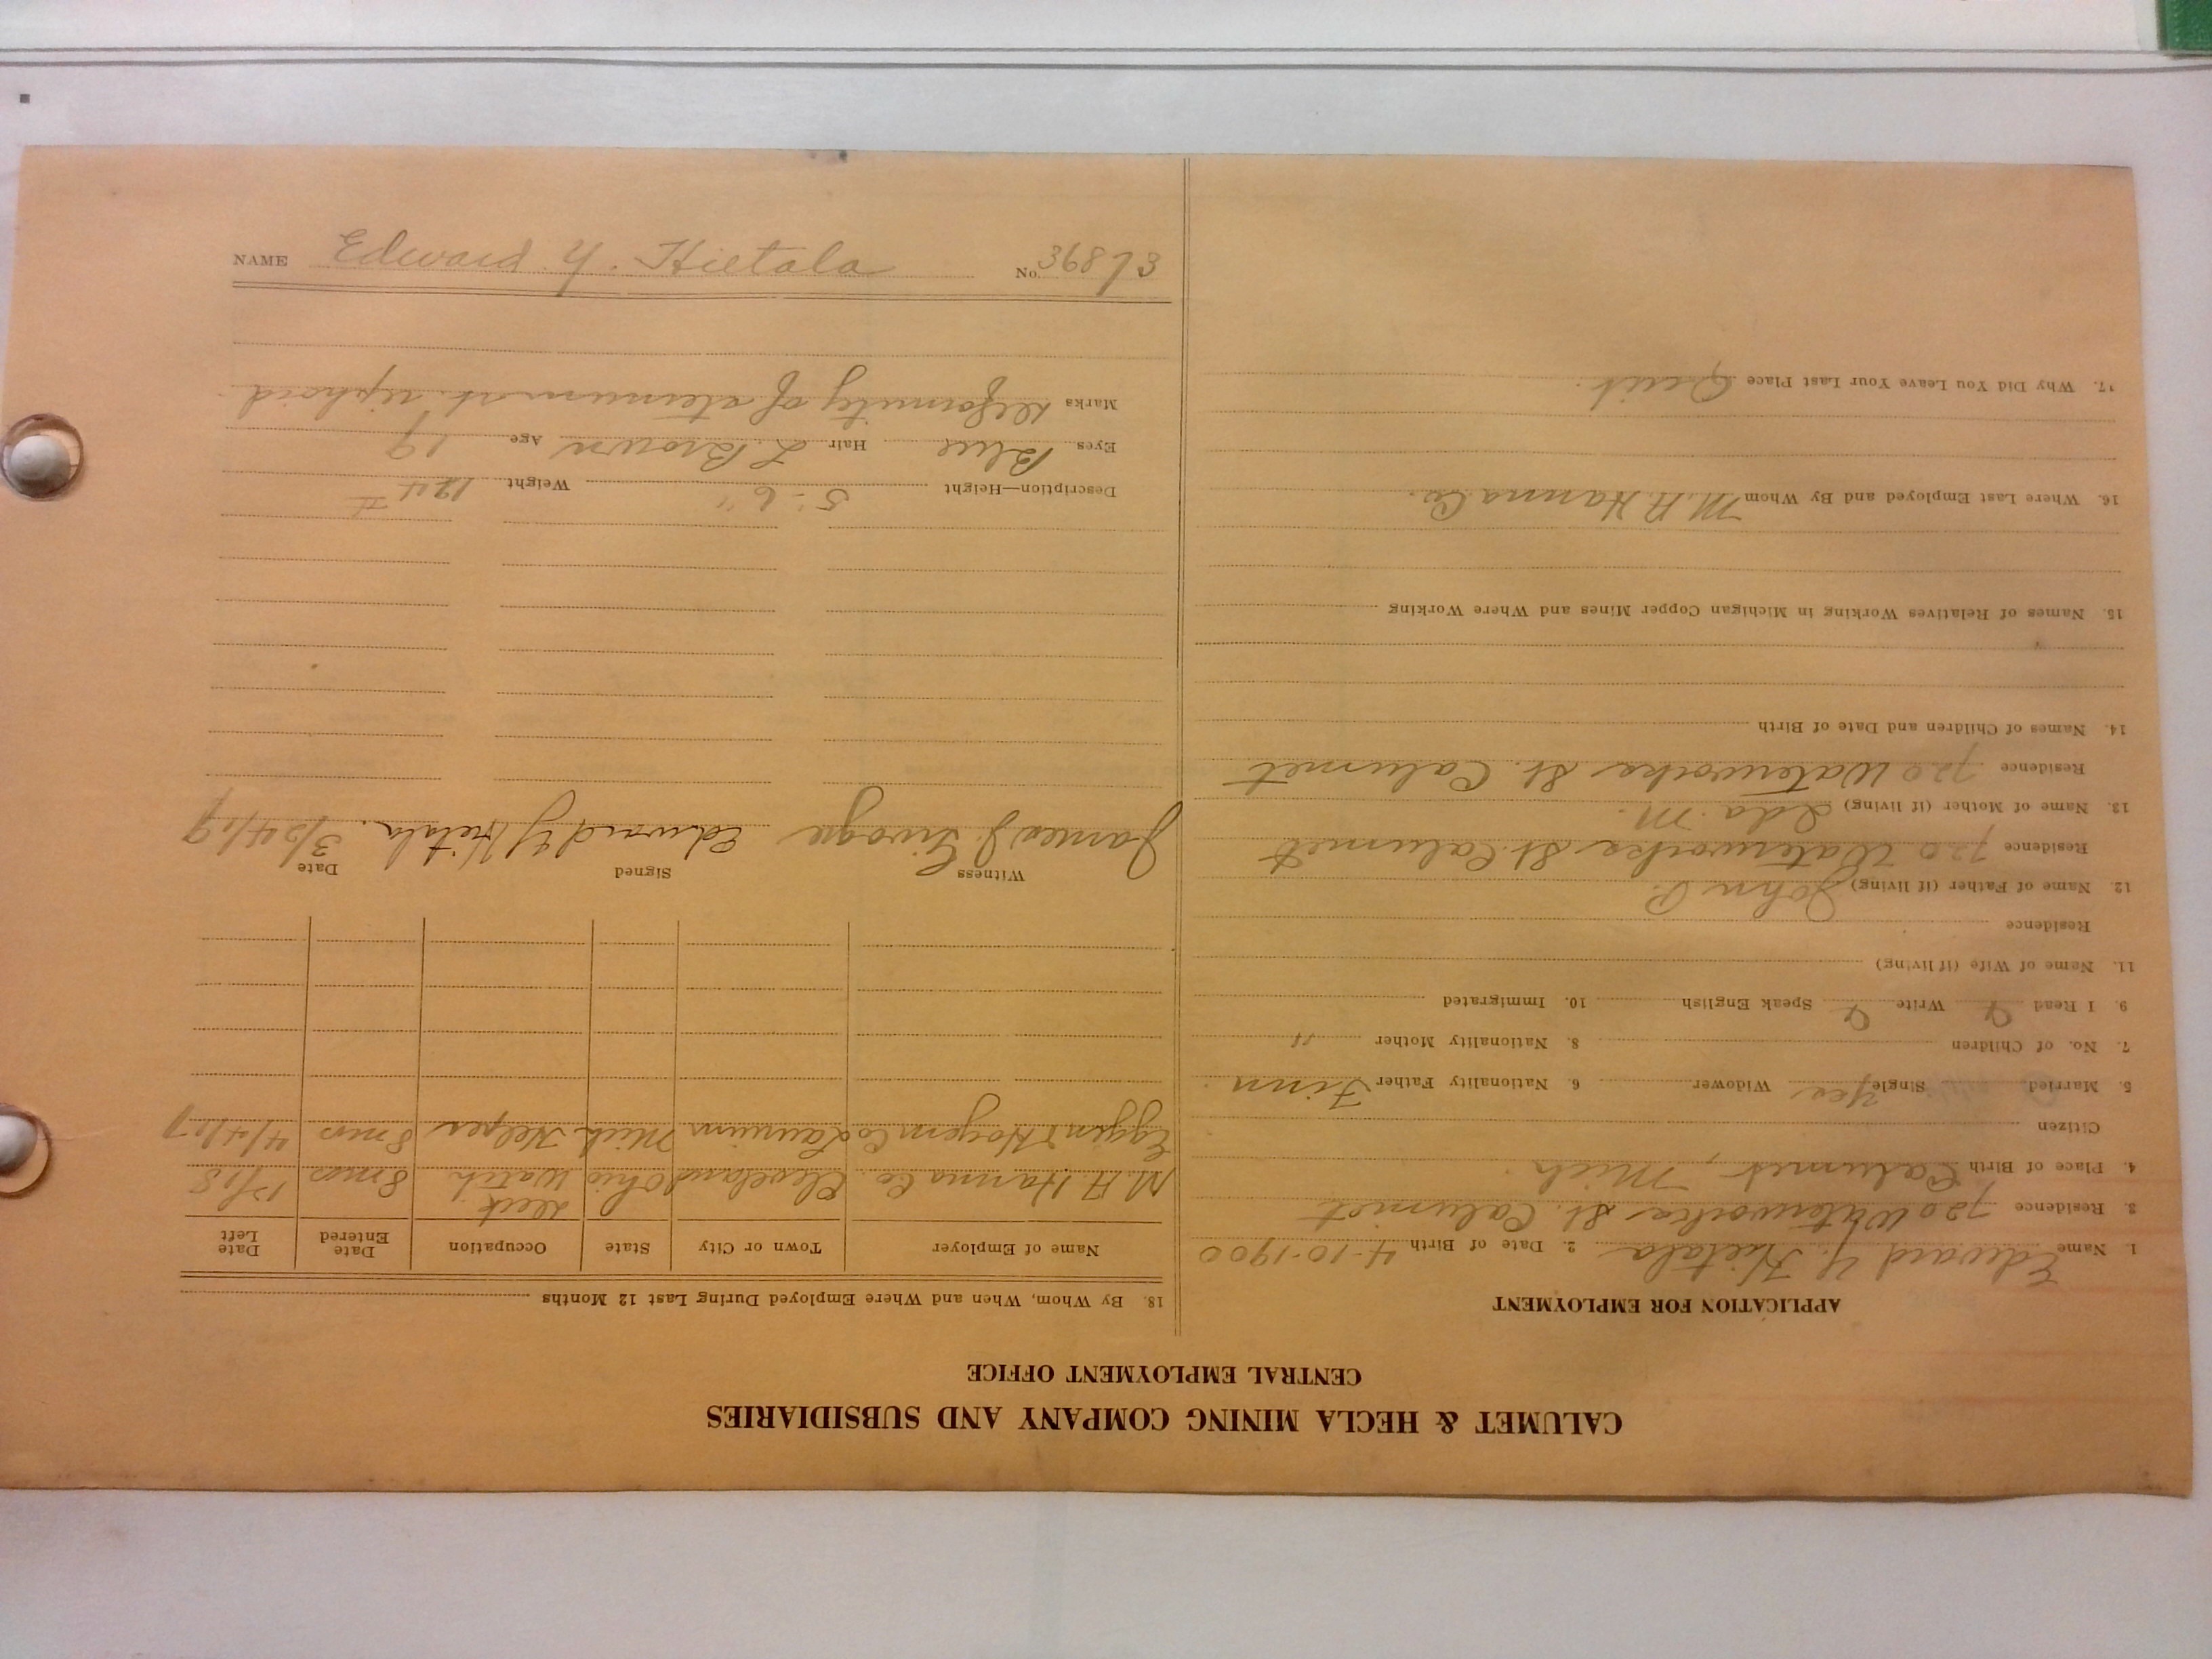 CALUMET & HECLA MINING COMPANY AND SUBSIDIARIES
CENTRAL EMPLOYMENT OFFICE
APPLICATION FOR EMPLOYMENT
1. Name Edward Y. Hietala 2. Date of Birth 4-10-1900
3. Residence 720 Waterworks St. Calumet
4. Place of Birth Calumet, Mich.
Citizen
5. Married Single Yes Widower 6. Nationality Father Finn
7. No. of Children 8. Nationality Mother "
9. I Read Write Speak English 10. Immigrated
11. Name of Wife (if living)
Residence
12. Name of Father (if living) John P.
Residence 720 Waterworks St. Calumet
13. Name of Mother (if living) Ida M.
Residence 720 Waterworks St. Calumet
14. Names of Children and Date of Birth
15. Names of Relatives Working in Michigan Copper Mines and Where Working
16. Where Last Employed and By Whom M. A. Hanna Co.
17. Why Did You Leave Your Last Place Quit.
18. By Whom, When and Where Employed During Last 12 Months
Name of Employer Town or City State Occupation Date Entered Date Left
M. A. Hanna Co. Cleveland Ohio Deck Watch 8 mos 12/18
Co Laurium Mich Helper 8 mos 4/4/17
Witness Signed Date
James J. Edward Y Hietala. 3/24/19
Description—Height 5'-6" Weight 124 #
Eyes Blue Hair L. Brown Age 19
Marks Deformity of sternum typhoid
NAME Edward Y. Hietala No. 36873